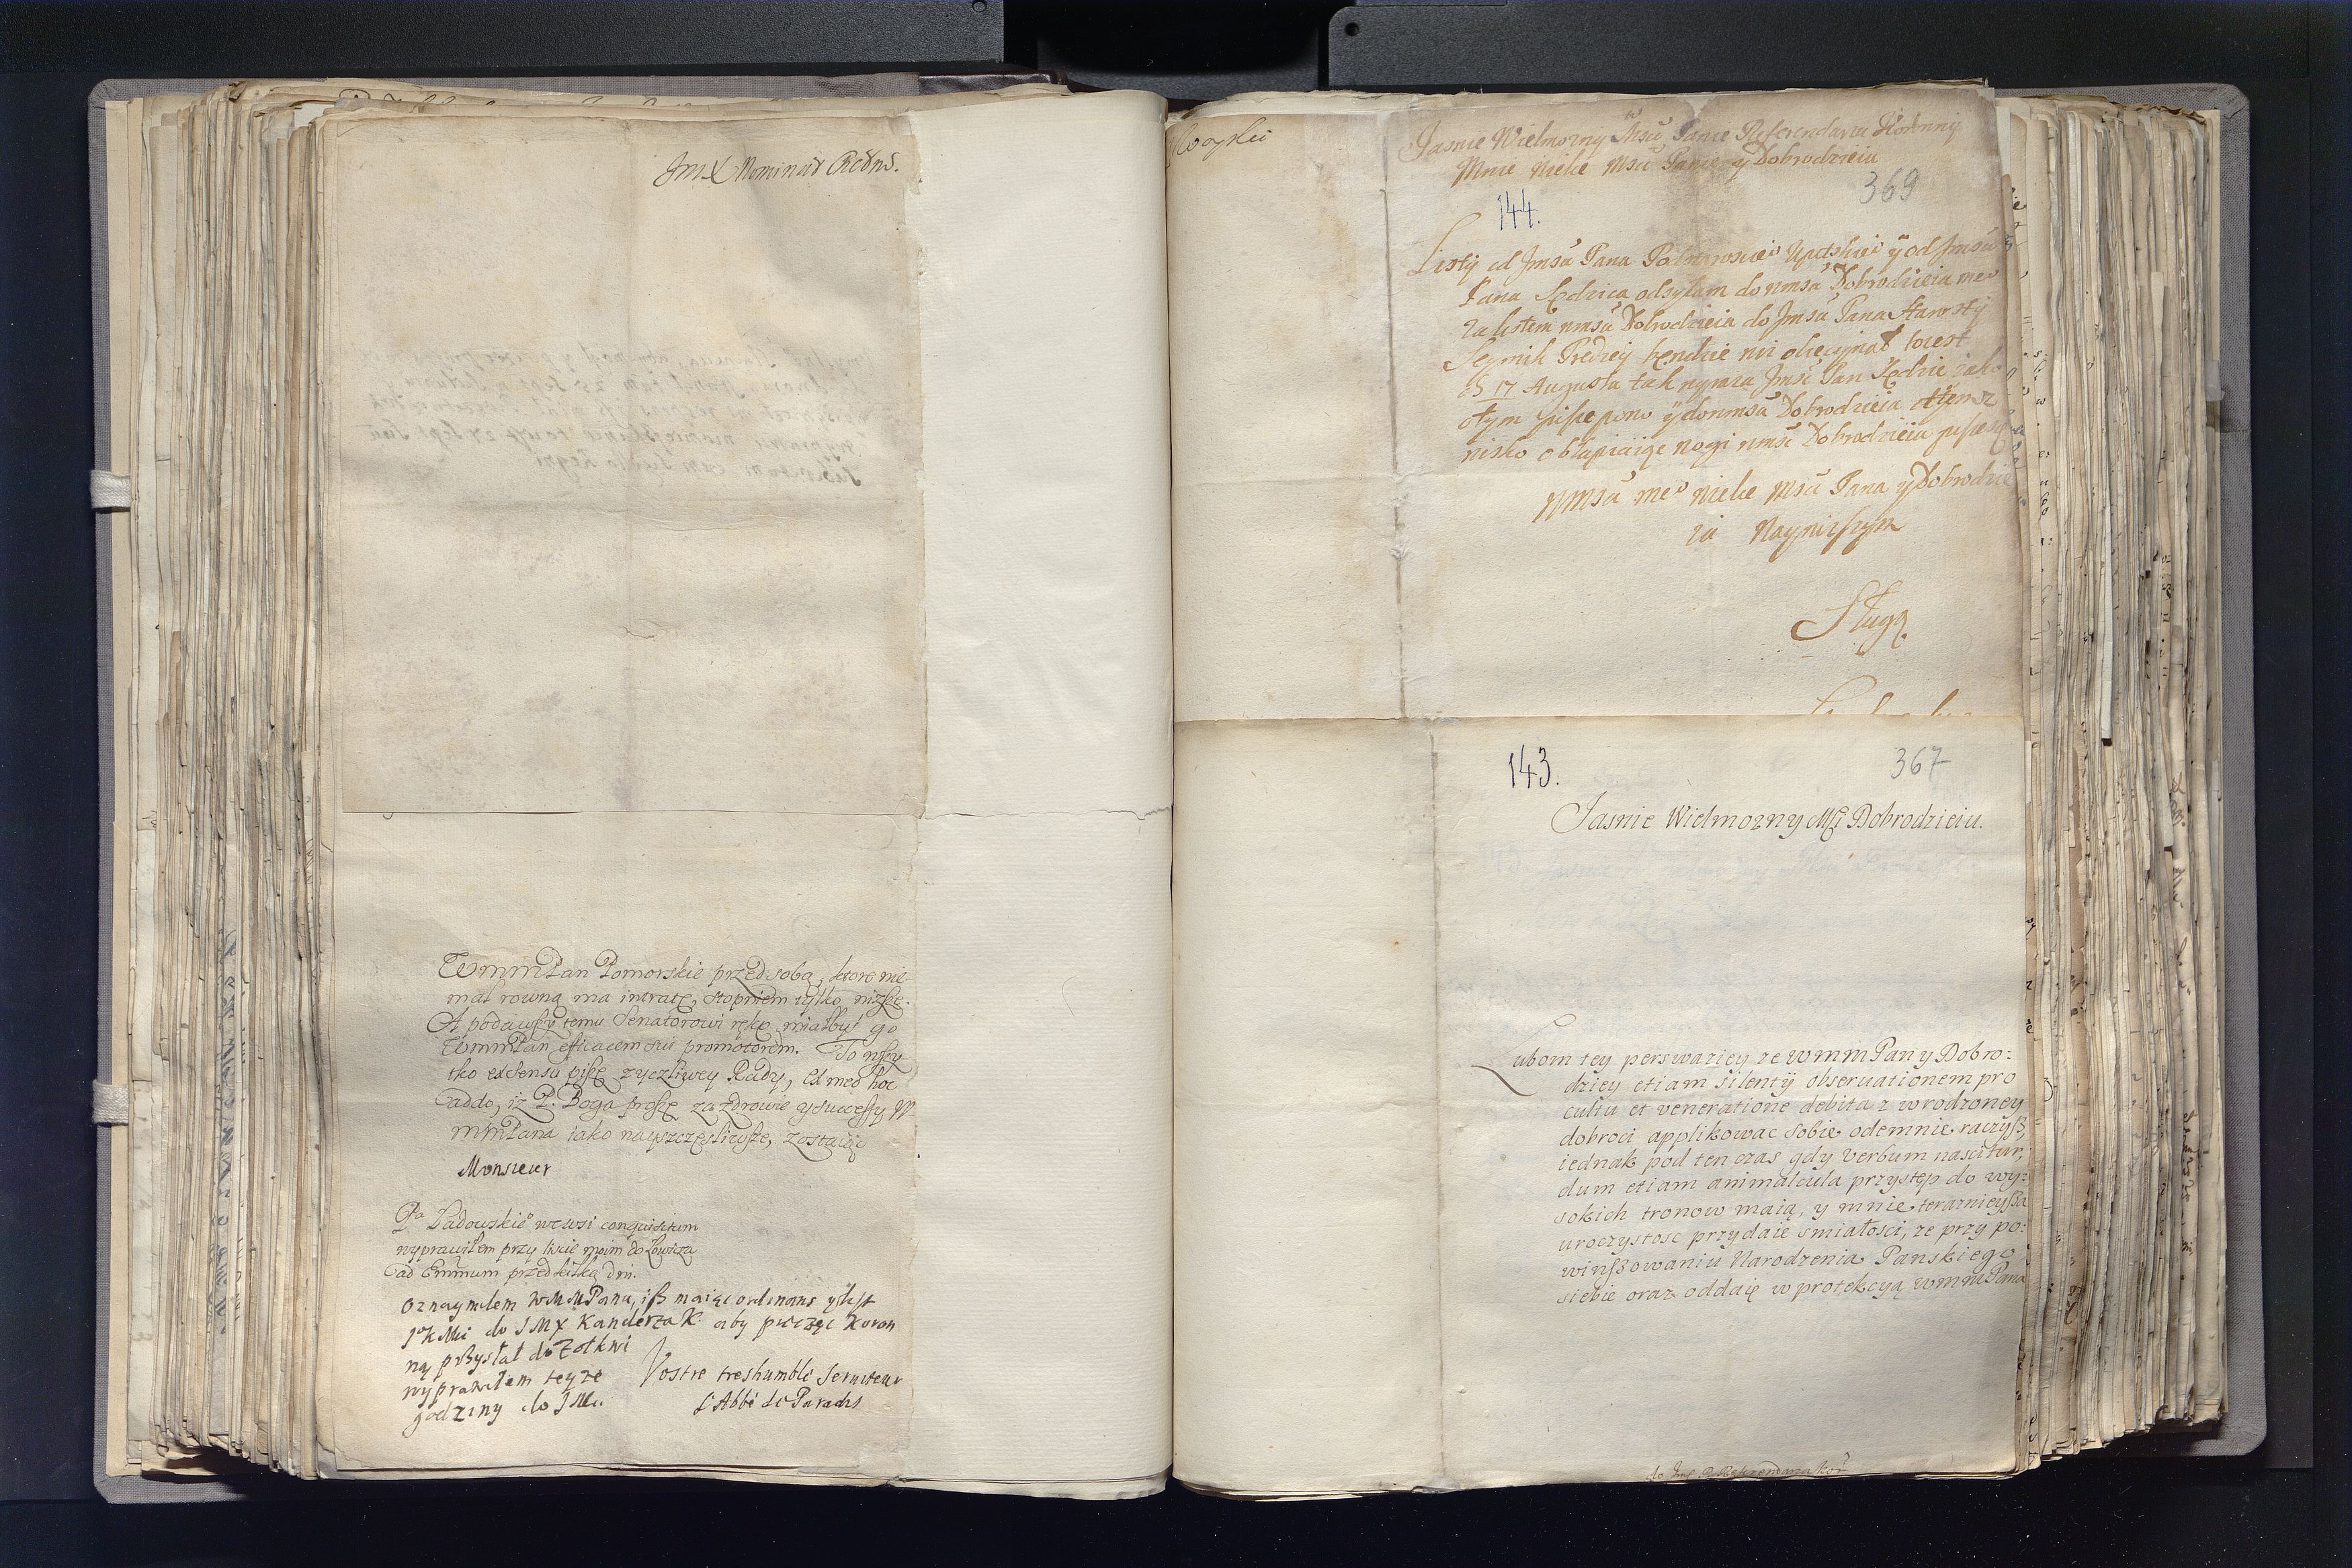 JmX Nominat
WmmPan Pomorskie przed sobą, ktore nie-
mal rowną ma intratę, stopniem tylko nizsze.
A podawszy temu Senatorowi rękę, miałbyś go
WmmPan efficacem sui promotorem. To wszy-
tko ex sensu piszę zyczliwey Rady, et meo hoc
addo, iz P. Boga proszę za zdrowie y sucessy W-
mmPana iako nayszczęsliwsze, zostaię
Monsieur
Pa Ładowskiego we wsi conquisitum
wyprawiłem przy liscie moim do Łowicza
ad Emmum przed kilką dni.
oznaymiłem WMMPanu, iß maiąc ordinans y list
JoKMci do JMX Kanclerza K. aby pieczęc Koron
ną przysłał do Zołkwi
wyprawiłem teyze
godziny do JMci
Vostre treshumble Serviteur
l'Abbé de Paradis
Jasnie Wielmozny Msci Panie Referendarzu Koronny
Mnie Wielce Msci Panie y Dobrodzieiu
369
144.
Listy od Jmsci Pana y od Jmsci
Pana Sędzica odsyłam do wmsci Dobrodzieia meo
za listem wmsci Dobrodzieia do Jmsci Pana Starosty
Seymik Prędzey bendzie niz obiecywał toiest
17 Augusta tak wyraza Jmsc Pan Sędzic iako
otym pisze y do wmsci Dobrodzieia
nisko obłapiaiąc nogi wmsci Dobrodzieia
Wmsci meo wielce Msci Pana y Dobrodzie
ia Nayniszym
Sługą
143.
367
Jasnie Wielmozny Msci Dobrodzieiu.
Lubom tey perswaziey ze WmmPan y Dobro:
dziey etiam silentij observationem pro
cultu et veneratione debita z wrodzoney
dobroci applikowac sobie odemnie raczysz,
iednak pod ten czas gdy Verbum nascitur,
dum etiam animalcula przystęp do wy:
sokich tronow maią, y mnie teraznieysza
uroczystosc przydaie smiałosci, ze przy po:
winszowaniu Narodzenia Panskiego
siebie oraz oddaię w protekcyą WmmPana
do Jmc P. Referendarza Kor.